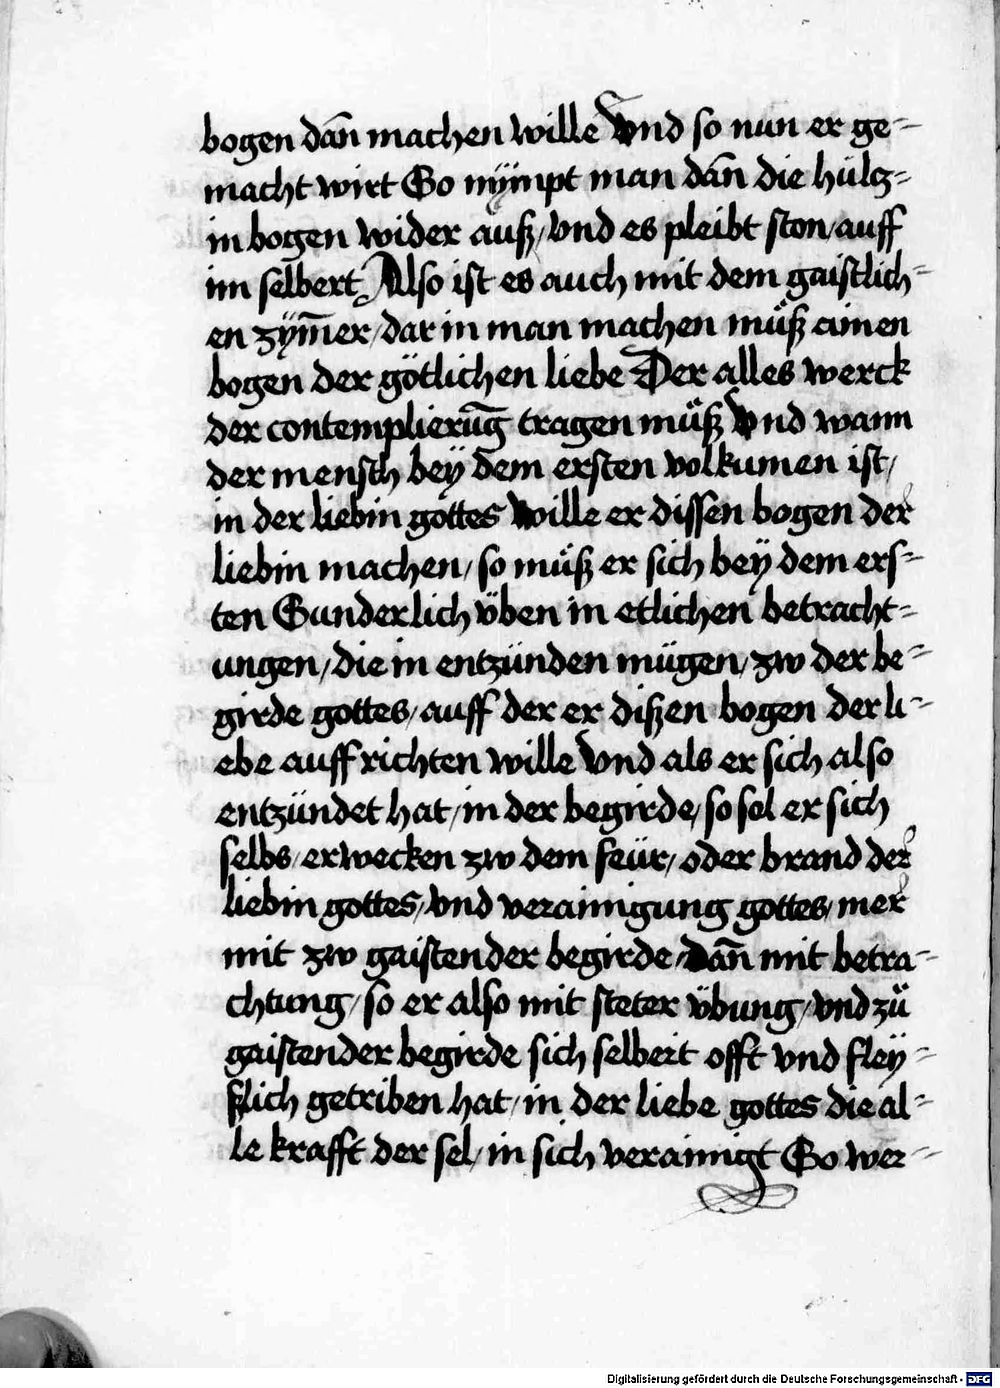 bogen dañ machen wille Vnd so nun er ge-
macht wirt So nÿmpt man dañ die hültz-
in bogen wider auß/ vnd es pleibt ston/ auff
im selbert Also ist es auch mit dem gaistlich-
en zym̄er/ dar in man machen müß ainen
bogen der götlichen liebe Der alles werck
der contemplierūg tragen müß Vnd wann
der mensch bey dem ersten volkumen ist/
in der liebin gottes wille er dissen bogen der
liebin machen/ so müß er sich bey dem ers-
ten Sunderlich üben in etlichen betracht-
ungen/ die in entzünden mügen/ zw der be-
girde gottes/ auff der er dißen bogen der li-
ebe auff richten wille Vnd als er sich also
entzündet hat/ in der begirde/ so sol er sich
selbs/ erwecken zw dem feür/ oder brand der
liebin gottes/ vnd verainigung gottes/ mer
mit zw gaistender begirde/ dañ mit betra-
chtung/ so er also mit steter übung/ vnd zů
gaistender begirde sich selbert offt vnd fley-
ßlich getriben hat/ in der liebe gottes die al-
le krafft der sel/ in sich verainigt So wer-
Digitalisierung gefördert durch die Deutsche Forschungsgemeinschaft - DFG